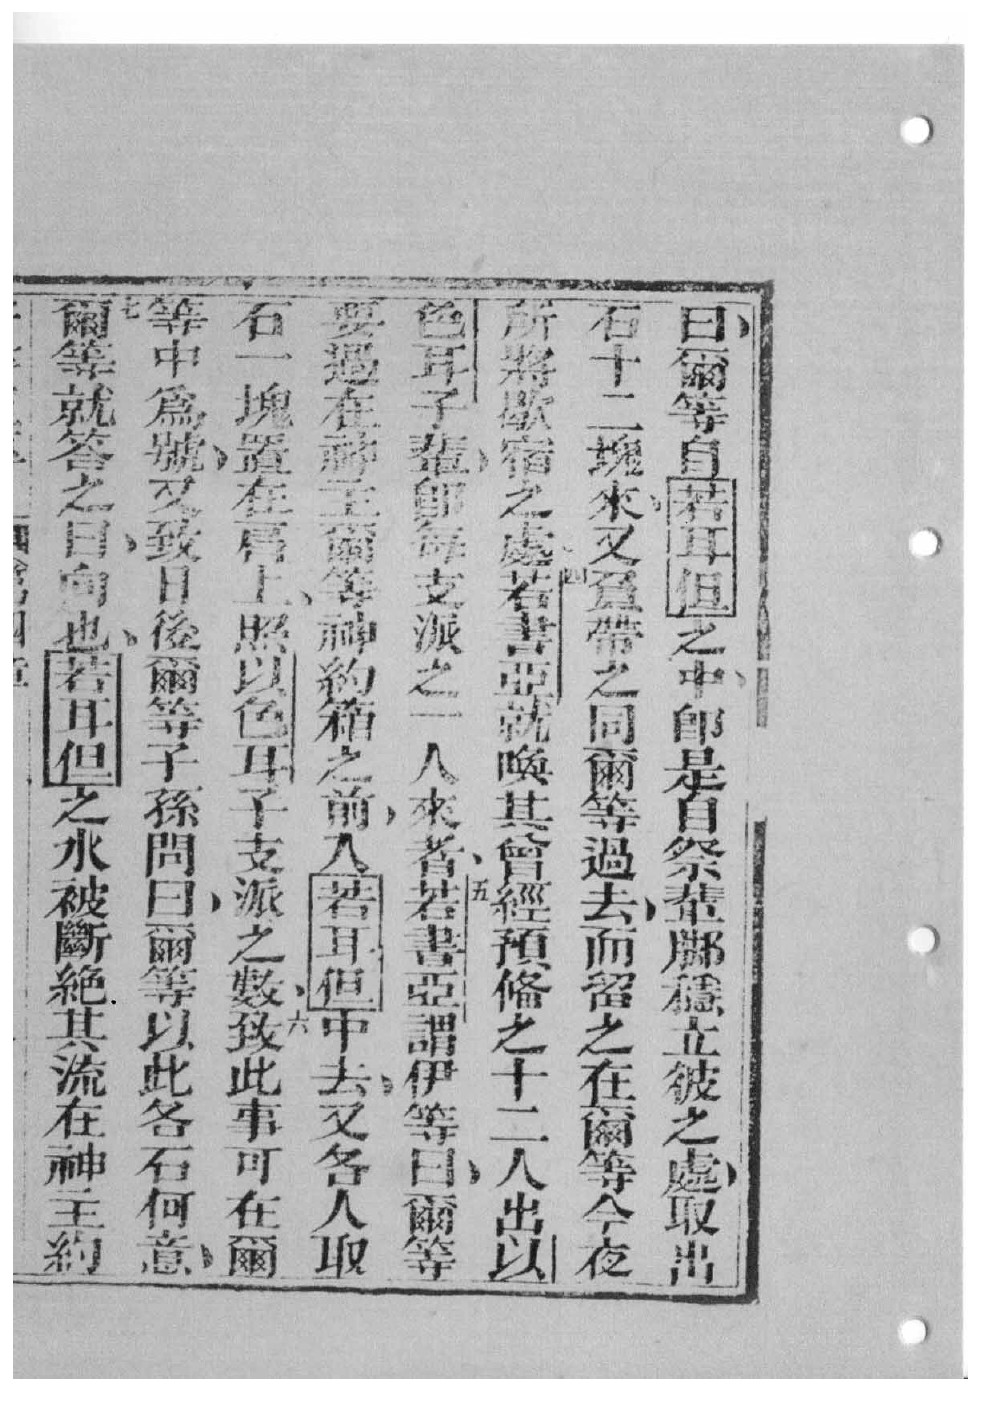 曰爾等自若耳但之中卽是自祭輩脚穩立彼之處取出
石十二塊來又爲帶之同爾等過去而留之在爾等今夜
所將歇宿之處四若書亞就喚其曾經預俻之十二人出以
色耳子輩卽每支派之一人來者五若書亞謂伊等曰爾等
要過在神主爾等神約箱之前入若耳但中去又各人取
石一塊置在肩上照以色耳子支派之數六致此事可在爾
等中爲號又致日後爾等子孫問曰爾等以此各石何意
七爾等就答之曰向也若耳但之水被斷絕其流在神主約